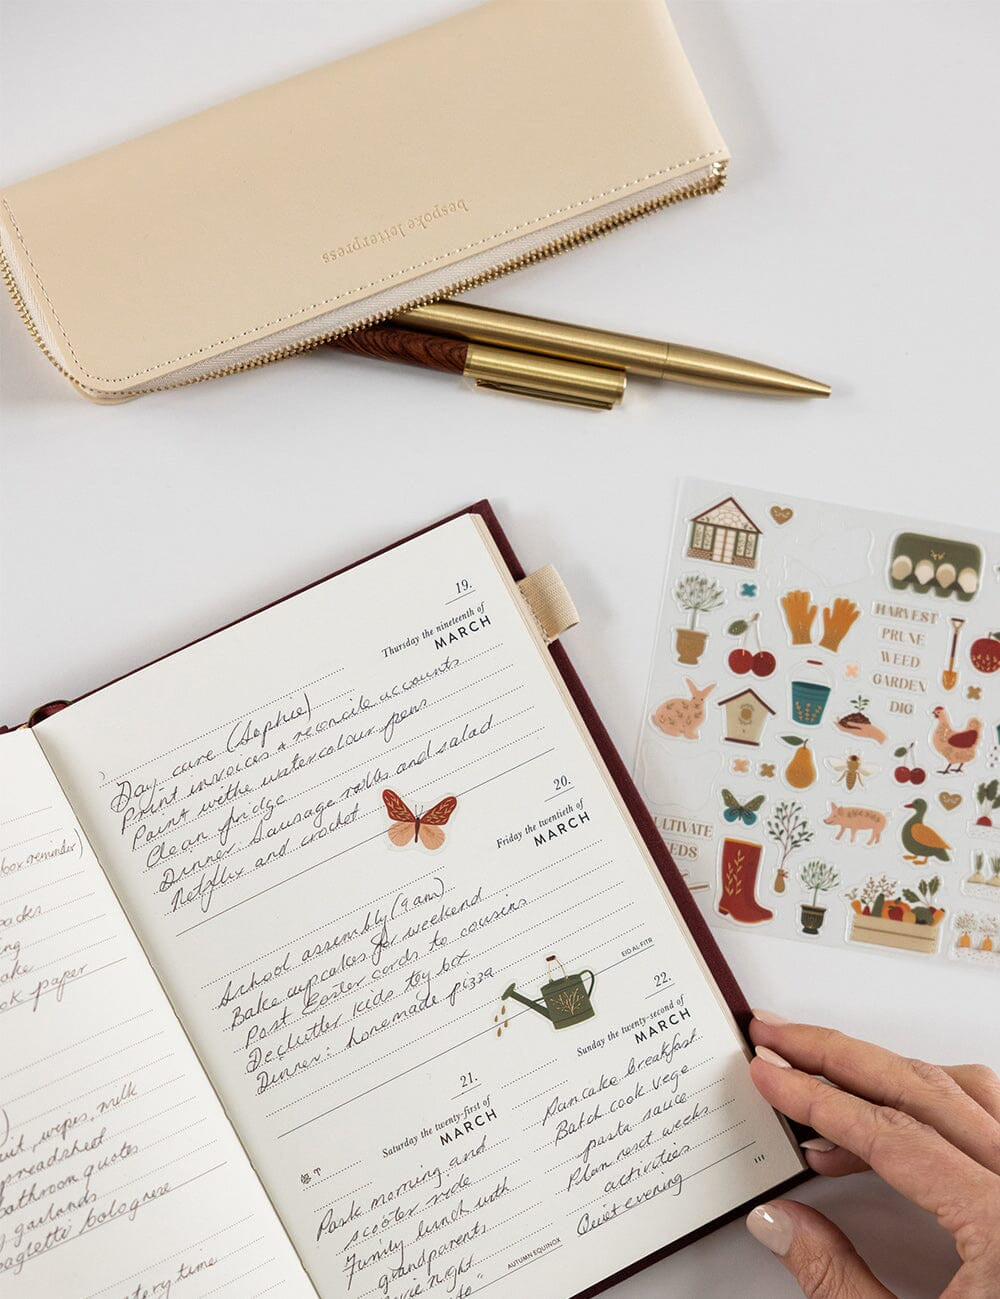 bespoke letterpress
19.
Thursday the nineteenth of
MARCH
Day care (Sophie)
Print invoices & reconcile accounts
Paint with watercolour pens
Clean fridge
Dinner: Sausage rolls and salad
Netflix and crochet
20.
Friday the twentieth of
MARCH
School assembly (9am)
Bake cupcakes for weekend
Post Easter cards to cousins
Declutter kids toy box
Dinner: homemade pizza
EID AL-FITR
21.
Saturday the twenty-first of
MARCH
Park morning and
scooter ride
Family lunch with
grandparents
night
AUTUMN EQUINOX
22.
Sunday the twenty-second of
MARCH
Pancake breakfast
Batch cook vege
pasta sauce
Plan next weeks
activities
Quiet evening
box reminder)
paper
wipes, milk
spreadsheet
bathroom quotes
garlands
bolognese
time
HARVEST
PRUNE
WEED
GARDEN
DIG